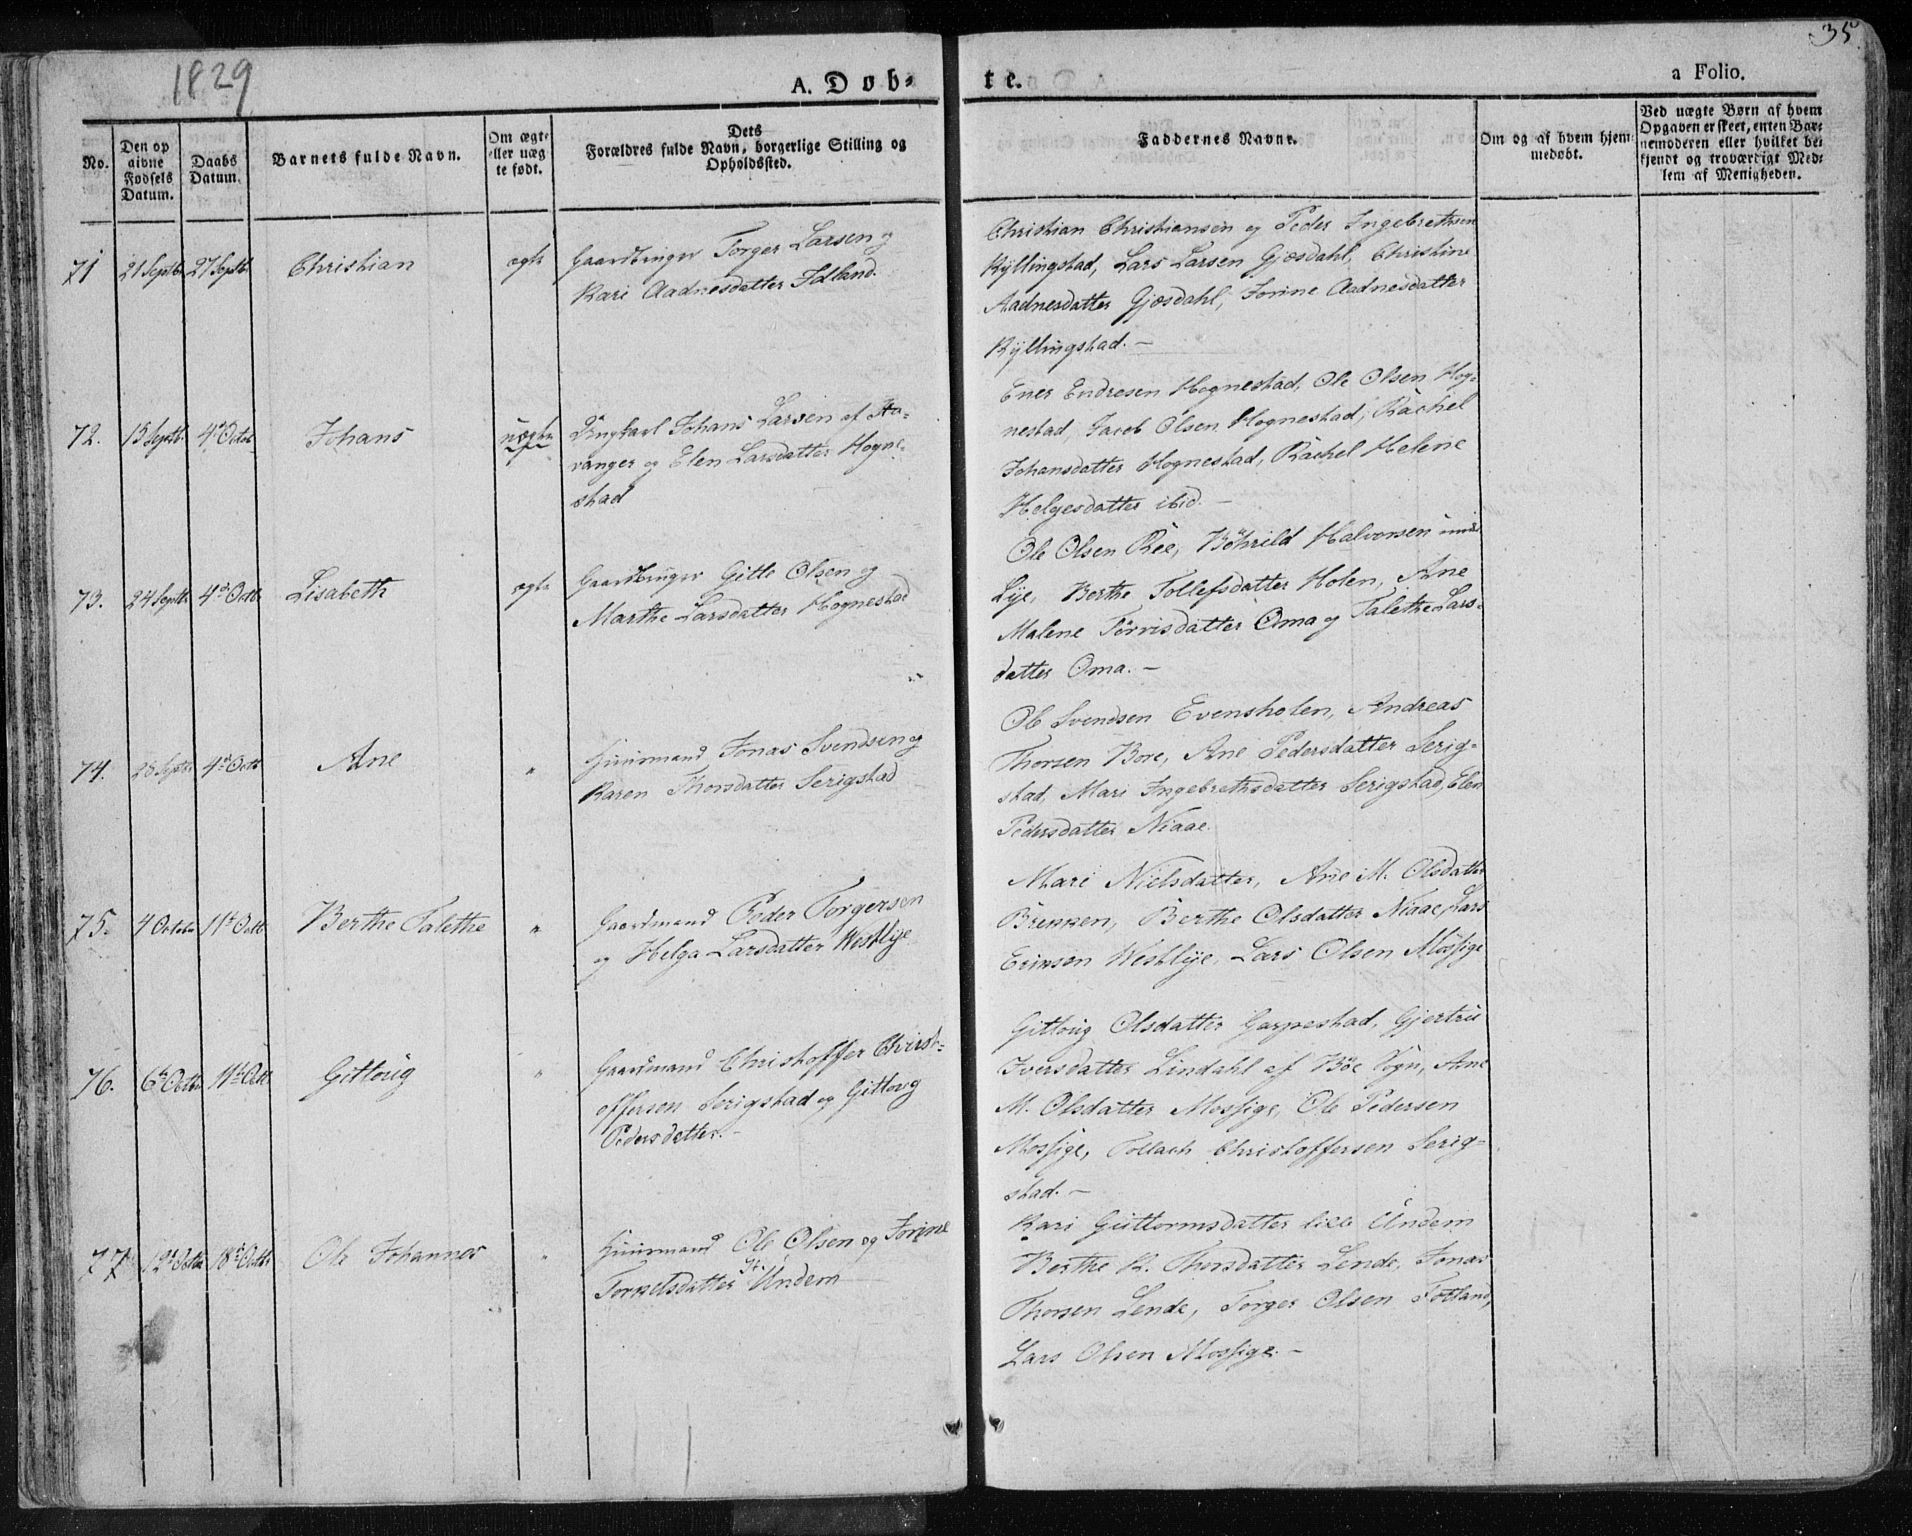 1829
A. Døb-
te.
35.
a Folio.
No.
Den op
givne
Fødsels
Datum.
Daabs
Datum.
Barnets fulde Navn.
Om ægte
eller uæg
te født.
Dets
Forældres fulde Navn, borgerlige Stilling og
Opholdssted.
Faddernes Navne.
Om og af hvem hjem-
medøbt.
Ved uægte Børn af hvem
Opgaven er skeet, enten Bar-
nemoderen eller hvilket be-
kjendt og troværdigt Med-
lem af Menigheden.
71 21 Septbr 27 Septbr Christian ægte
Gaardbruger Torger Larsen og
Kari Aadnesdatter Idland.
Christian Christiansen og Peder Ingebrethsen
Kyllingstad, Lars Larsen Gjesdahl, Christine
Aadnesdatter Gjesdahl, Jorine Aadnesdatter
Kyllingstad. –
72. 15 Septb. 4de Octob Johans uægte
Ungkarl Johans Larsen af Sta-
vanger og Elen Larsdatter Hogne-
stad
Ener Endresen Hognestad, Ole Olsen Hog-
nestad, Jacob Olsen Hognestad, Rachel
Johansdatter Hognestad, Rachel Helene
Helgesdatter ibid. –
73. 24 Septbr 4de Octb. Lisabeth ægte
Gaardbruger Gitle Olsen og
Marthe Larsdatter Hognestad
Ole Olsen Ree, Børild Halvorsen
Lye, Berthe Tollefsdatter Holen, Ane
Malene Torrisdatter Oma og Talethe Lars-
datter Oma. –
74. 28 Septbr 4de Octb Ane "
Huusmand Jonas Svendsen og
Karen Thorsdatter Serigstad
Ole Svendsen Evensholen, Andreas
Thorsen Bore, Ane Pedersdatter Serig-
stad, Mari Ingebrethsdatter Serigstad, Elen
Pedersdatter Niaae.
75. 4 Octobr 11te Octb Berthe Talethe "
Gaardmand Peder Torgersen
og Helga Larsdatter Westlye
Mari Nielsdatter, Ane M. Olsdatter
Brekken, Berthe Olsdatter Niaae, Lars
Eriksen Westlye, Lars Olsen Mossige
76. 6te Octbr 11te Octb. Gitloug "
Gaardmand Christoffer Christ-
offersen Serigstad og Gitloug
Pedersdatter. –
Gitloug Olsdatter Garpestad, Gjertru
Iversdatter Lindahl af Bøe Sogn, Ane
M. Olsdatter Mossige, Ole Pedersen
Mossige, Tollach Christoffersen Serig-
stad. –
77 12te Octbr 18de Octbr Ole Johannes "
Huusmand Ole Olsen og Jorine
Torkelsdatter St. Undem
Kari Guttormsdatter lille Undem
Berthe K. Thorsdatter Lende, Jonas
Thorsen Lende, Torger Olsen Fotland,
Lars Olsen Mossige. –